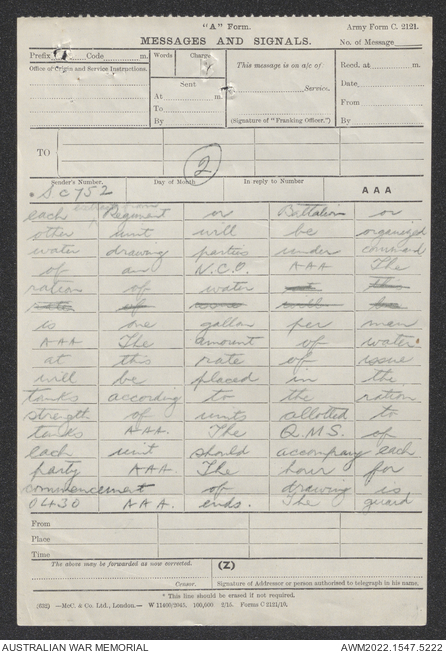 "A" Form.
Army Form C. 2121.
MESSAGES AND SIGNALS.
No. of Message
Prefix Code m.
Words
Charge
This message is on a/c of
Recd. at m.
Office of Origin and Service Instructions.
Sent
Date
At m.
Service.
From
To
By
(Signature of "Franking Officer.")
By
TO
2
Sender's Number.
Day of Month
In reply to Number
AAA
SC752
each Regiment or Battalion or
other unit will be organized
water drawing parties under command
of an N.C.O. AAA The
ration of water
is one gallon per man
AAA The amount of water
at this rate of issue
will be placed in the
tanks according to the ration
strength of units allotted to
tanks AAA. The Q.M.S. of
each unit should accompany each
party AAA. The hour for
commencement of drawing is
0430 AAA. ends. The guard
From
Place
Time
The above may be forwarded as now corrected.
(Z)
Censor.
Signature of Addressor or person authorised to telegraph in his name.
* This line should be erased if not required.
(682) —McC. & Co. Ltd., London.— W 11400/2045. 100,000 2/15. Forms C 2121/10.
AUSTRALIAN WAR MEMORIAL
AWM2022.1547.5222